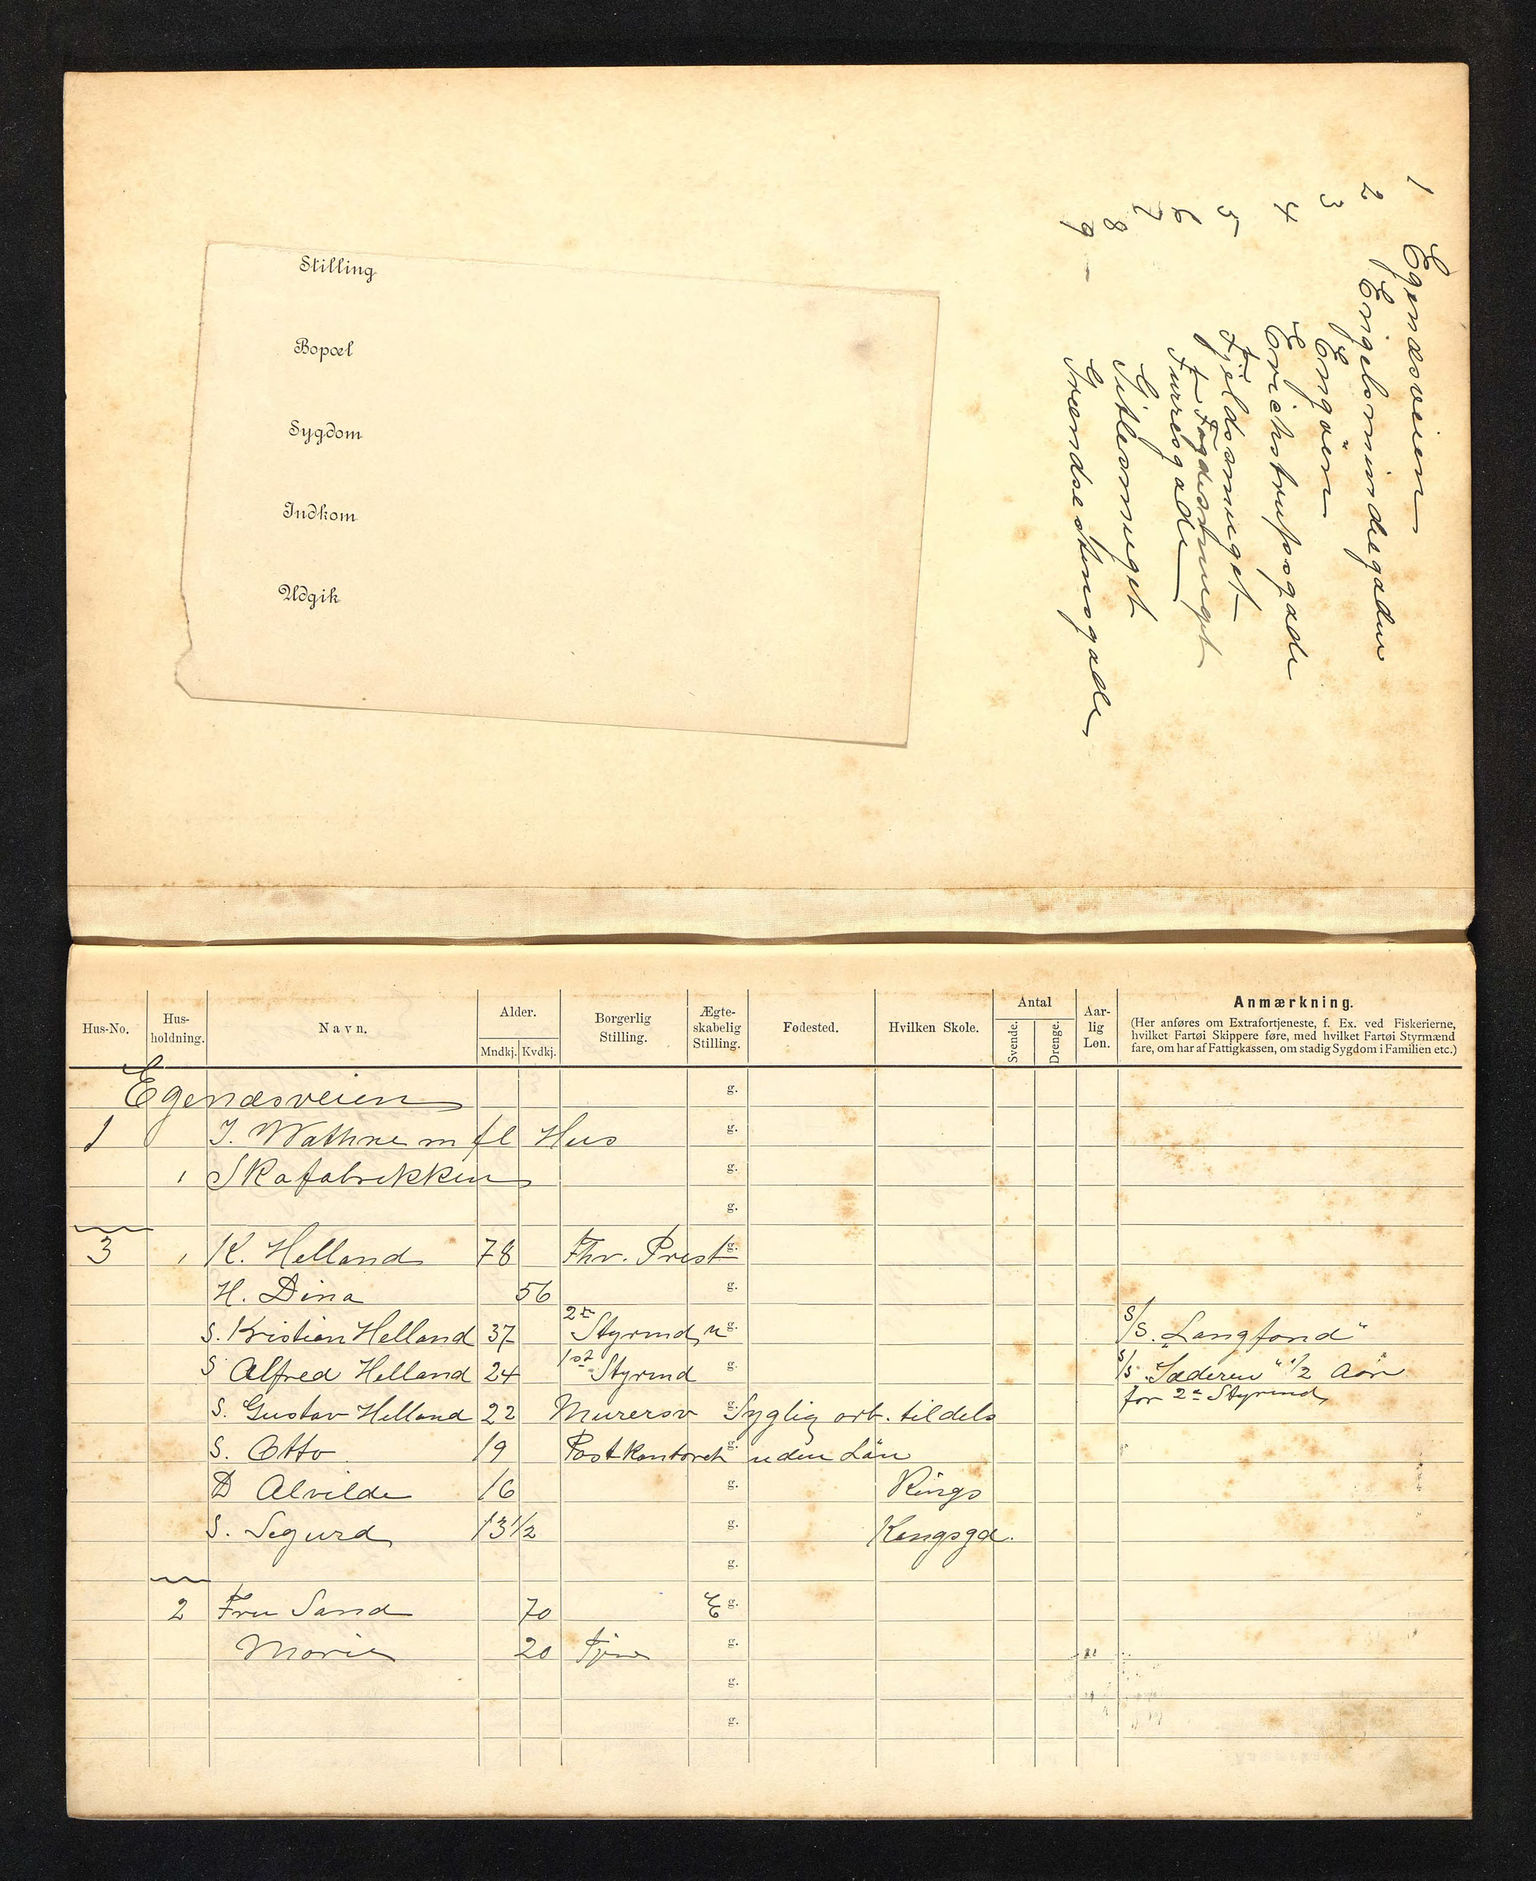 1 Egenæsveien
2 Engelsmindegaden
3 Engöen
4 Erichstrupsgade
5 Fjeldsmuget
6 Fogdesmuget
7 Furresgade
8 Gitlesmuget
9 - Grændsestensgade
Stilling
Bopæl
Sygdom
Indkom
Udgik
Hus-No. Hus-holdning. Navn. Alder. Mndkj. Kvdkj. Borgerlig Stilling. Ægte-skabelig Stilling. Fødested. Hvilken Skole. Antal Svende. Drenge. Aar-lig Løn. Anmærkning.
(Her anføres om Extrafortjeneste, f. Ex. ved Fiskerierne,
hvilket Fartøi Skippere føre, med hvilket Fartøi Styrmænd
fare, om har af Fattigkassen, om stadig Sygdom i Familien etc.)
Egenæsveien g.
1 J. Wathne m fl Hus g.
1 Skofabrikken g.
g.
3 1 K. Helland 78 Fhv. Prest g.
H. Dina 56 g.
S. Kristian Helland 37 2n Styrmd u g. S/S. "Langfond"
S Alfred Helland 24 1st Styrmd g. S/S "Jæderen" 1/2 Aar
for 2n Styrmd
S. Gustav Helland 22 Murersv g. Syglig arb. tildels
S. Otto 19 Postkontoret g. uden Lön
D Alvilde 16 g. Rings
S. Segurd 13 1/2 g. Kongsgd.
g.
2 Fru Sand 70 E g.
Marie 20 Tjen g.
g.
g.